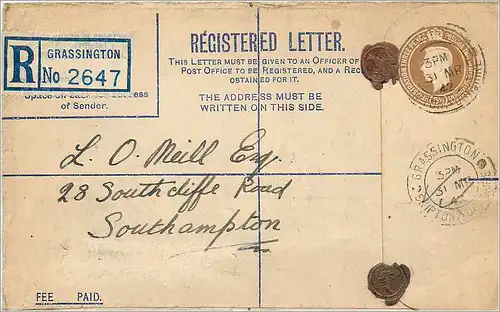 R
GRASSINGTON
No 2647
of Sender.
REGISTERED LETTER.
THIS LETTER MUST BE GIVEN TO AN OFFICER OF
POST OFFICE TO BE REGISTERED, AND A REC
OBTAINED FOR IT.
THE ADDRESS MUST BE
WRITTEN ON THIS SIDE.
3PM
31 MR
42
GRASSINGTON
3PM
31 MR
42
SKIPTON
L. O. Meill Esq.
28 Southcliffe Road
Southampton
FEE PAID.